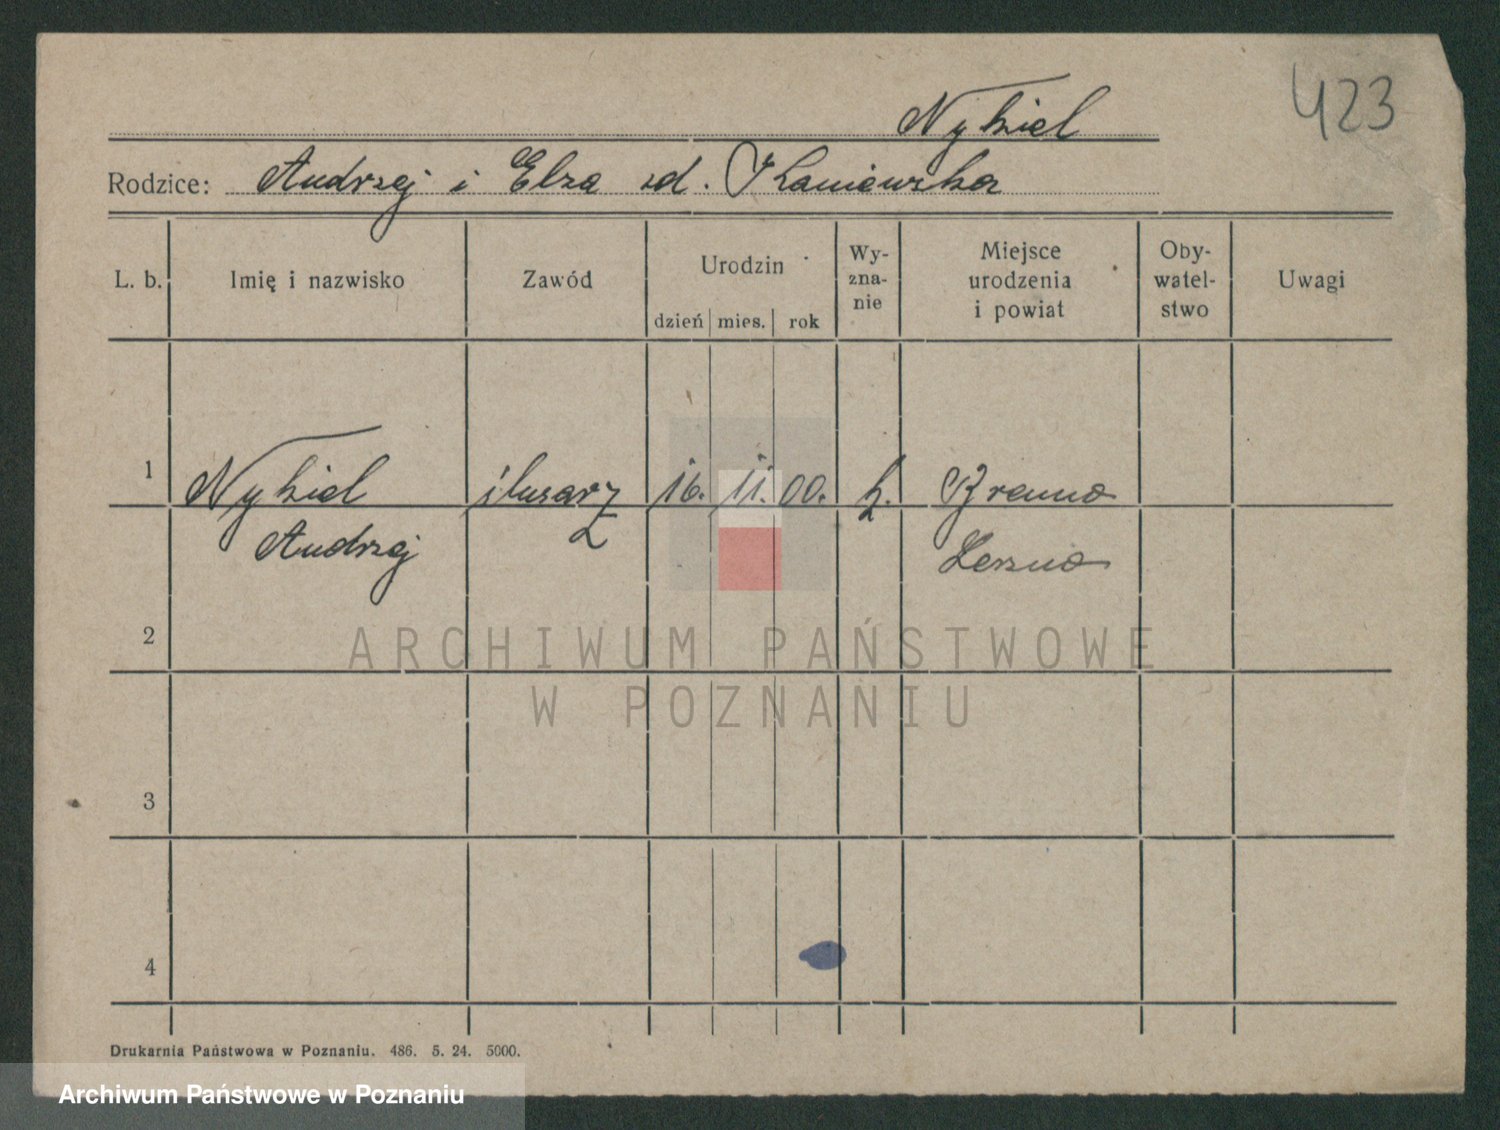 423
Nykiel
Rodzice: Andrzej i Elza zd. Kaniewska
L. b. Imię i nazwisko Zawód Urodzin Wy- zna- nie Miejsce urodzenia i powiat Oby- watel- stwo Uwagi
dzień mies. rok
1 Nykiel ślusarz 16. 11. 00. k. Brenno
Andrzej Leszno
2
ARCHIWUM PAŃSTWOWE
W POZNANIU
3
4
Drukarnia Państwowa w Poznaniu. 486. 5. 24. 5000.
Archiwum Państwowe w Poznaniu